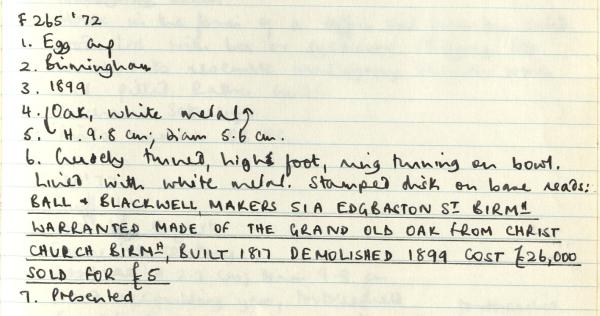 F265 '72
1. Egg cup
2. Birmingham
3. 1899
4. Oak, white metal
5. H. 9.8 cm; Diam 5.6 cm.
6. Crudely turned, high foot, ring turning on bowl.
Lined with white metal. Stamped disk on base reads:
BALL & BLACKWELL, MAKERS 51A EDGBASTON ST BIRMH
WARRANTED MADE OF THE GRAND OLD OAK FROM CHRIST
CHURCH BIRMH, BUILT 1817 DEMOLISHED 1899 COST £26,000
SOLD FOR £5
7. Presented